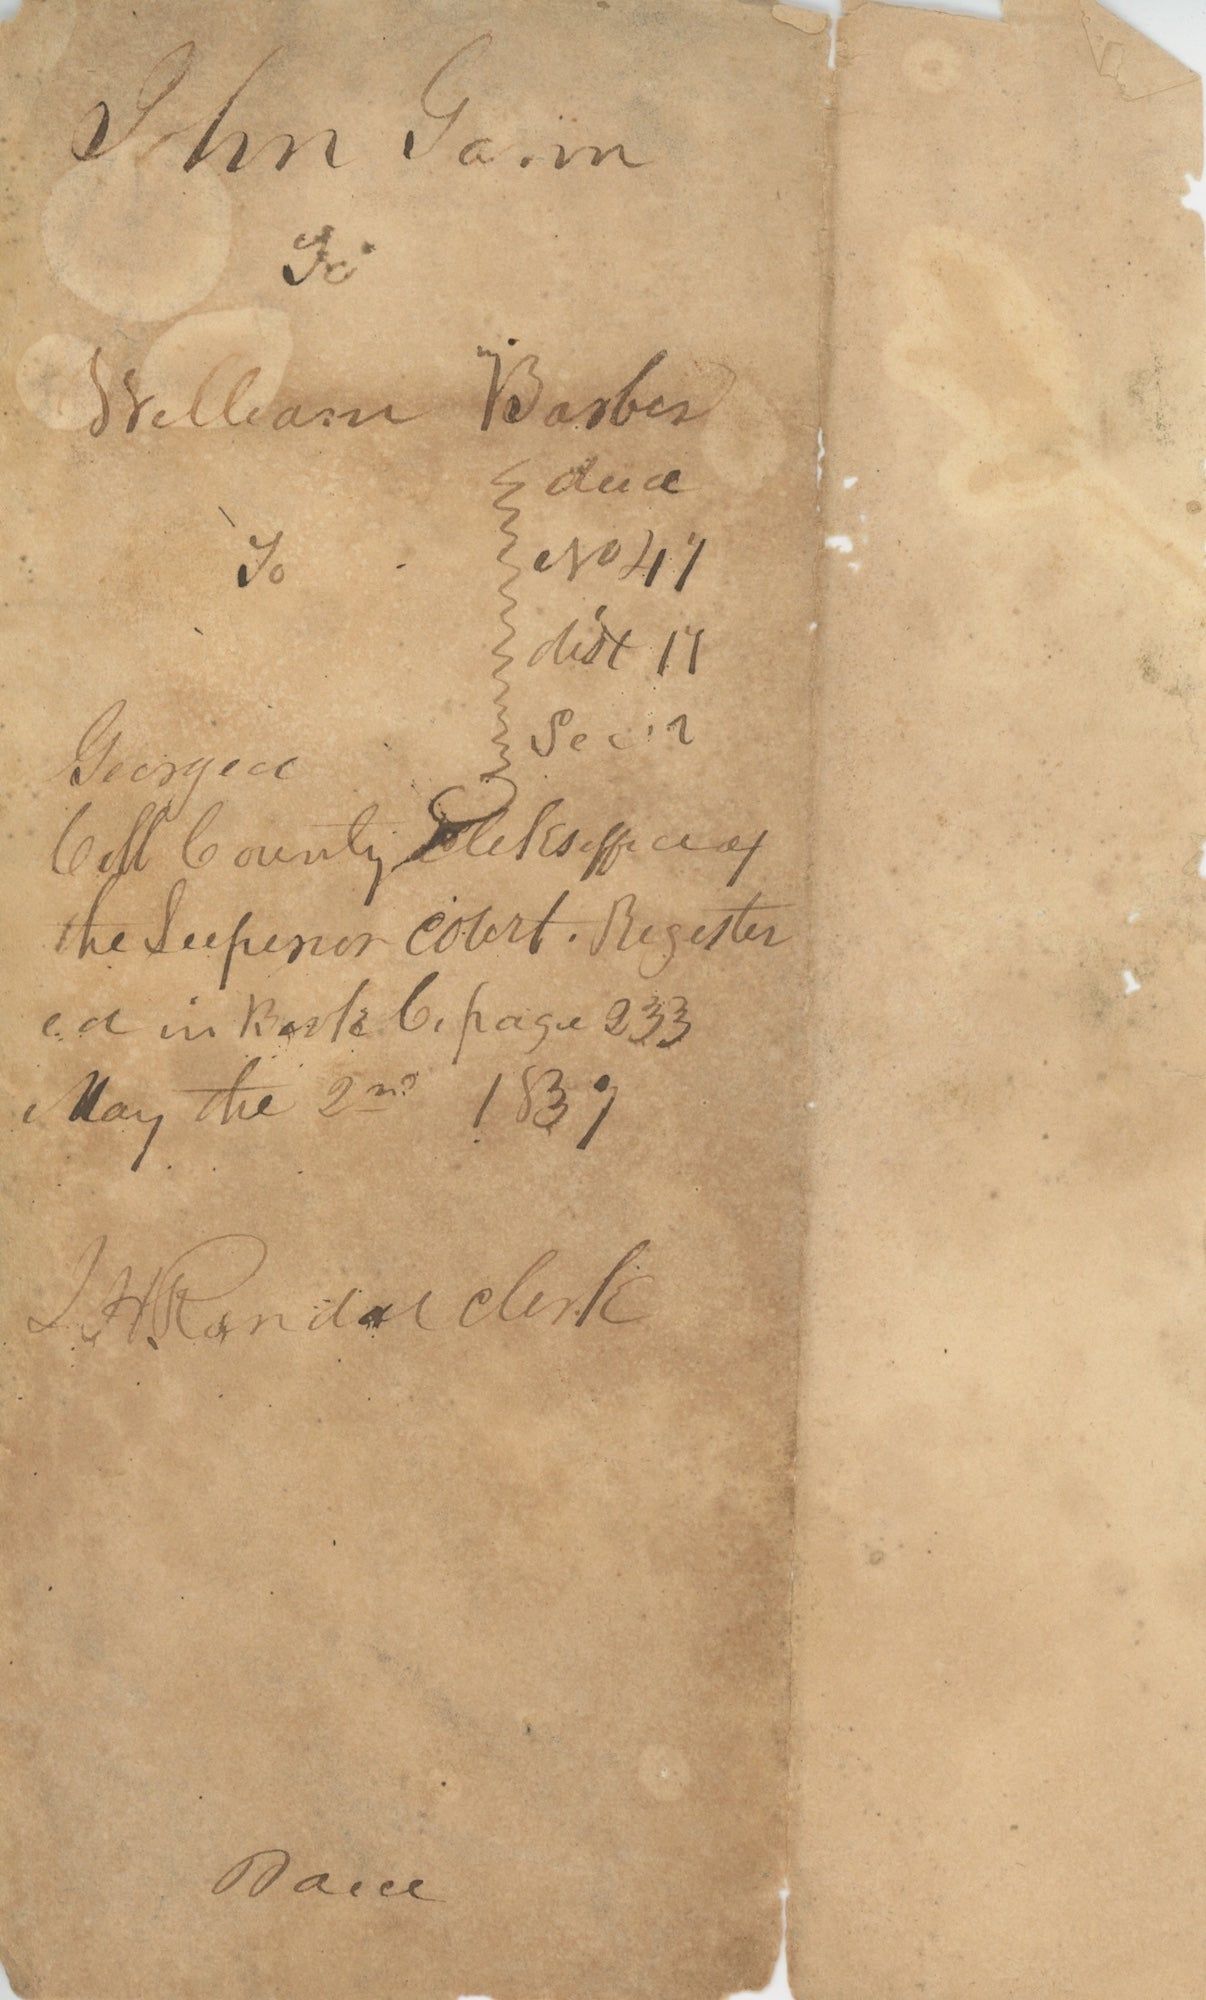 John
To
William Barber
deed
To
No 47
dist 11
Sec 2
Georgia
County Clerks office of
the Superior Court. Register
ed in Book C. page 233
May the 2nd 1837
Randal clerk